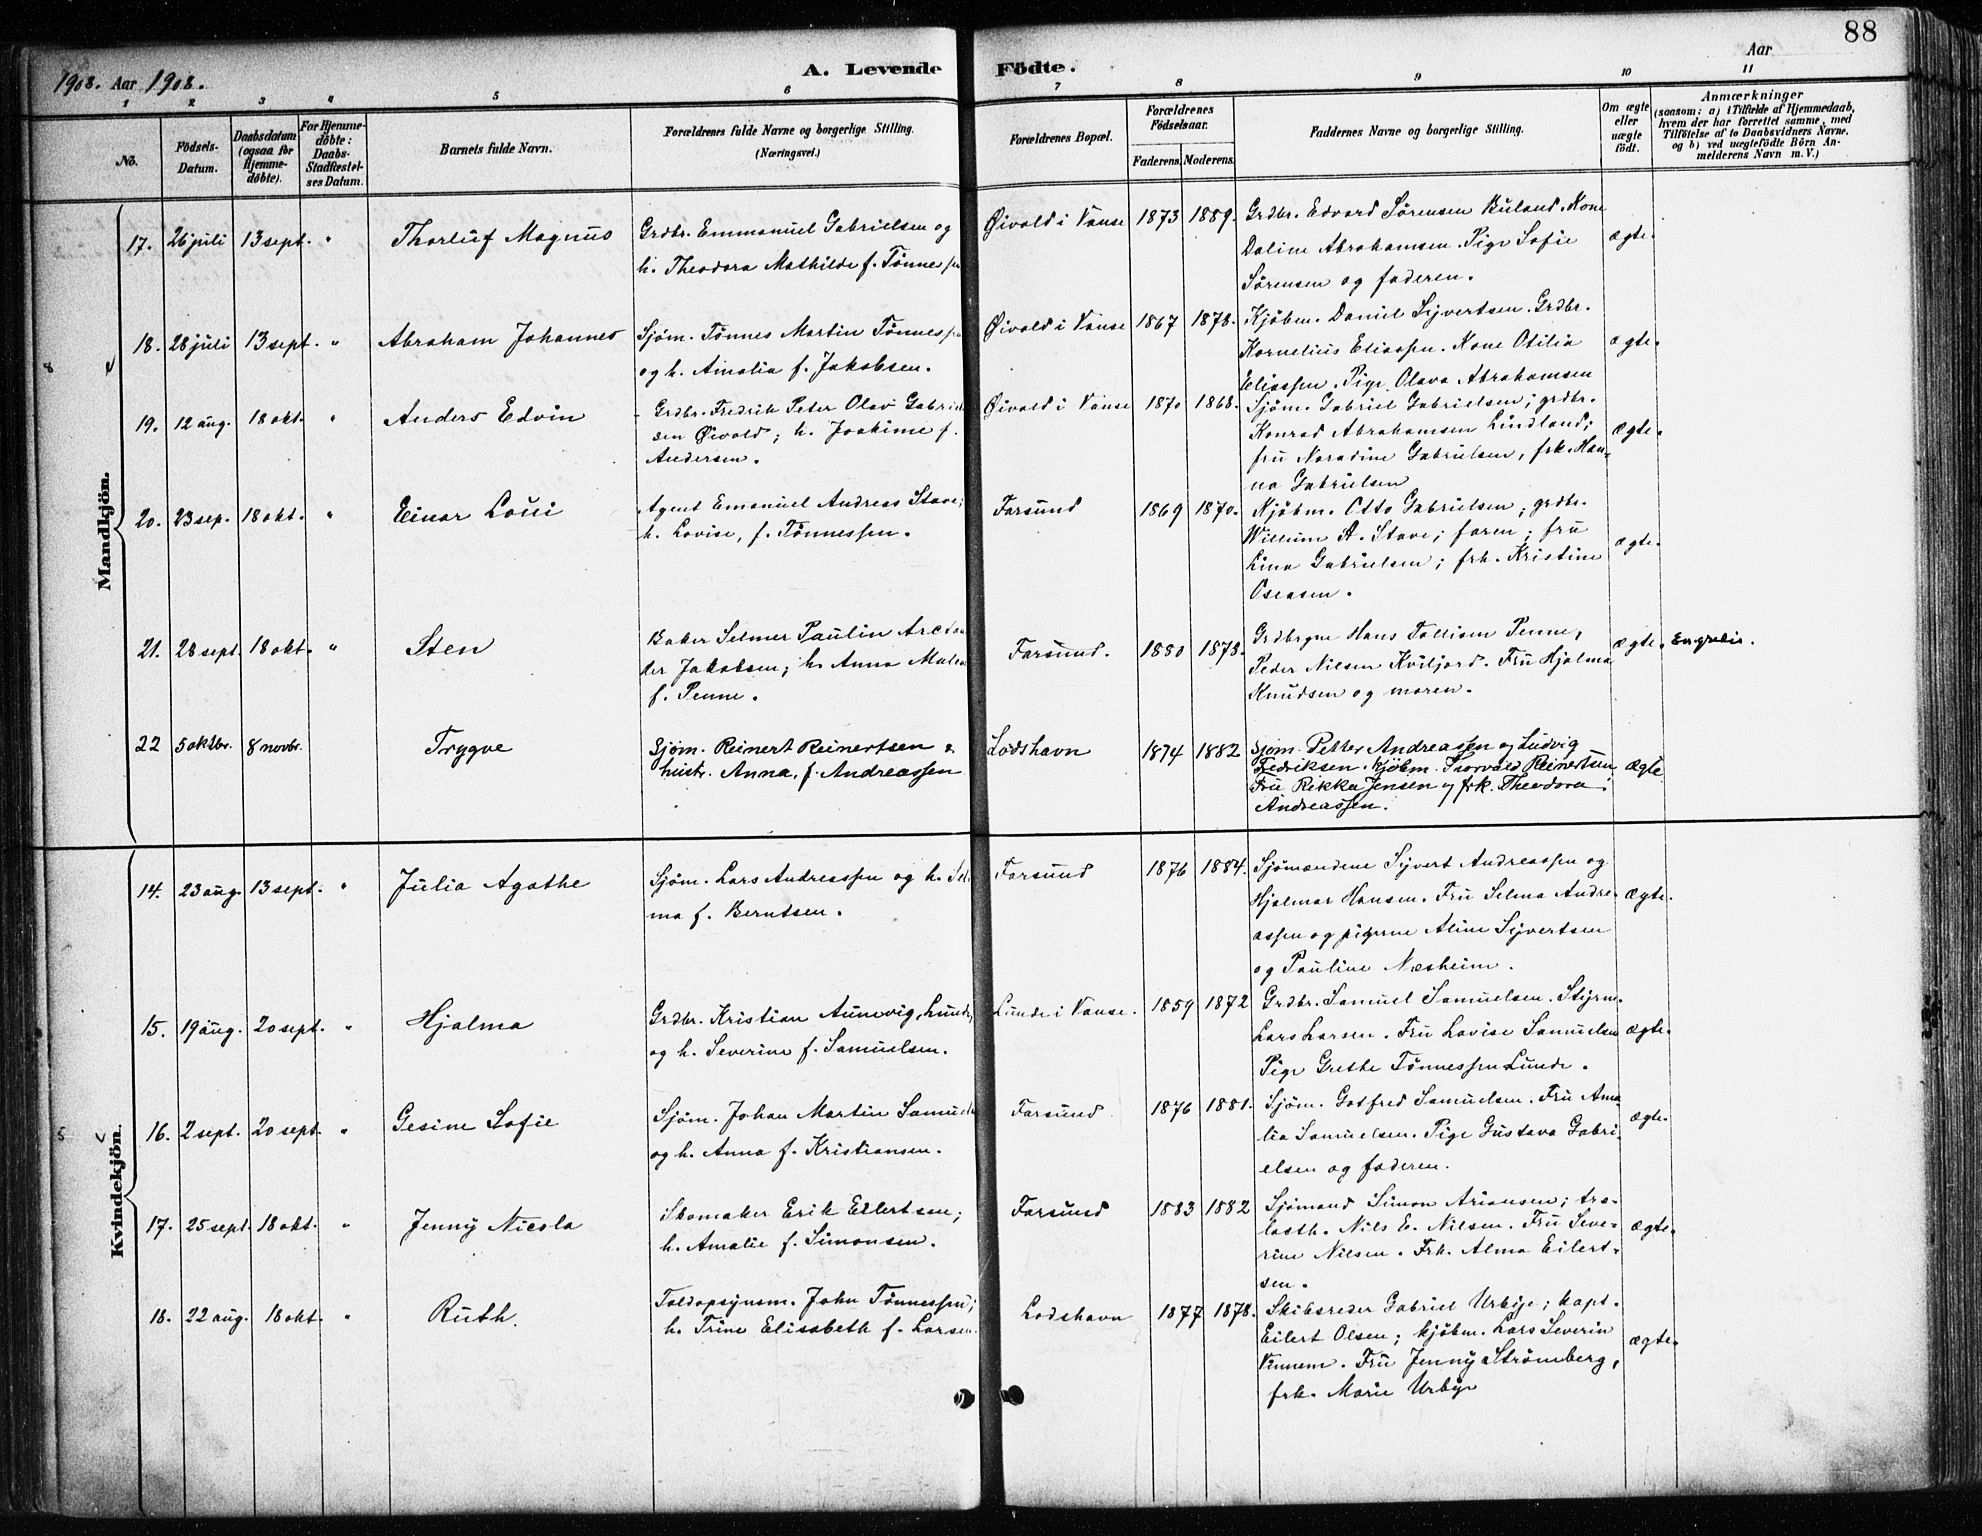 88
1908. Aar 1908.
A. Levende Födte.
Aar
1 2 3 4 5 6 7 8 9 10 11
Nö.
Födsels-
Datum.
Daabsdatum
(ogsaa for
Hjemme-
døbte).
For Hjemme-
döbte:
Daabs-
Stadfæstel-
ses Datum.
Barnets fulde Navn.
Forældrenes fulde Navne og borgerlige Stilling.
(Næringsvei.)
Forældrenes Bopæl.
Forældrenes
Födselsaar.
Faderens. Moderens.
Faddernes Navne og borgerlige Stilling.
Om ægte
eller
uægte
födt.
Anmærkninger
(saasom: a) i Tilfælde af Hjemmedaab,
hvem der har forrettet samme, med
Tilföielse af to Daabsvidners Navne.
og b) ved uægtefödte Börn An-
melderens Navn m. V.)
Mandkjön.
17. 26 juli 13 sept. " Thorluf Magnus
Grdbr. Emmanuel Gabrielsen og
h. Theodora Mathilde f. Tønnessen
Øivold i Vanse 1873 1889.
Grdbr. Edvard Sørensen Buland. Kone
Daline Abrahamsen. Pige Sofie
Sørensen og faderen.
ægte.
18. 28 juli 13 sept. " Abraham Johannes
Sjøm. Tønnes Martin Tønnessen
og h. Amalia f. Jakobsen.
Øivold i Vanse 1867 1878.
Kjøbm. Daniel Sijvertsen. Grdbr.
Kornelius Eliassen. Kone Otilia
Eliassen. Pige Olava Abrahamsen
ægte.
19. 12 aug. 18 okt. " Anders Edvin
Grdbr. Fredrik Peter Olav Gabriel
sen Øivold; h. Joakime f.
Andersen.
Øivold i Vanse 1870 1868.
Sjøm. Gabriel Gabrielsen; grdbr.
Konrad Abrahamsen Lindland;
fru Noradine Gabrielsen, frk. Han-
na Gabrielsen
ægte.
20. 23 sep. 18 okt. " Einar Loui
Agent Emanuel Andreas Stave;
h. Lovise, f. Tønnessen.
Farsund 1869 1870.
Kjøbm. Otto Gabrielsen; grdbr.
Willum A. Stave; faren; fru
Lina Gabrielsen; frk. Kristine
Oseasen.
ægte.
21. 28 sept. 18 okt. " Sten
Baker Selmer Paulin
der Jakobsen; h. Anna
f. Penne.
Farsund. 1880 1878.
Hans Tolliom Penne,
Peder Nilsen Kviljord. Fru Hjalma
Knudsen og moren.
ægte.
22 5 oktbr. 8 novbr. Trygve
Sjøm. Reinert Reinertsen &
hustr. Anna, f. Andreassen
Lodshavn 1874 1882
Sjøm. Petter Andreassen og Ludvig
Fredriksen. Kjøbm. Thorvald Reinertsen
Fru Rikka Jensen og frk. Theodora
Andreassen.
Ægte
Kvindekjön.
14. 23 aug. 13 sept. " Julia Agathe
Sjøm. Lars Andreassen og h. Sel
ma f. Berntsen.
Farsund 1876 1884.
Sjømændene Sijvert Andreassen og
Hjalmar Hansen. Fru Selma Andre-
assen og pigerne Aline Sijvertsen
og Pauline Næsheim.
ægte.
15. 19 aug. 20 sept. " Hjalma
Grdbr. Kristian Aunevig, Lunde,
og h. Severine f. Samuelsen.
Lunde i Vanse. 1859 1872
Grdbr. Samuel Samuelsen. Styrm.
Lars Larsen. Fru Lovise Samuelsen
Pige Grethe Tønnessen Lunde.
ægte.
16. 2 sept. 20 sept. " Gesine Sofie
Sjøm. Johan Martin Samuels
og h. Anna f. Kristiansen.
Farsund 1876 1881.
Sjøm. Gotfred Samuelsen. Fru Ama-
lia Samuelsen. Pige Gustava Gabri-
elsen og faderen.
ægte.
17. 25 sept. 18 okt. " Jenny Nicola
Skomaker Erik Eilertsen;
h. Amalie f. Simonsen.
Farsund 1883 1882
Sjømand Simon Arionsen; tra-
lasth. Nils E. Nilsen. Fru Seve-
rine Nilsen. Frk. Alma Eilert-
sen.
ægte.
18. 22 aug. 18 okt. " Ruth.
Toldopsynsm. John Tønnessen;
h. Trine Elisabeth f. Larsen.
Lodshavn 1877 1878.
Skibsreder Gabriel Urbye; kapt.
Eilert Olsen; kjøbm. Lars Severin
Vinnem. Fru Jenny Strømberg,
frk. Marie Urbye
ægte.